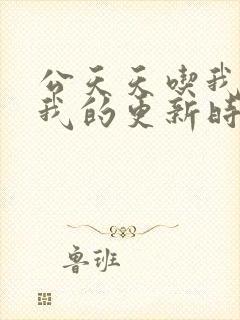 公天天喫我
我的更新時
鲁班